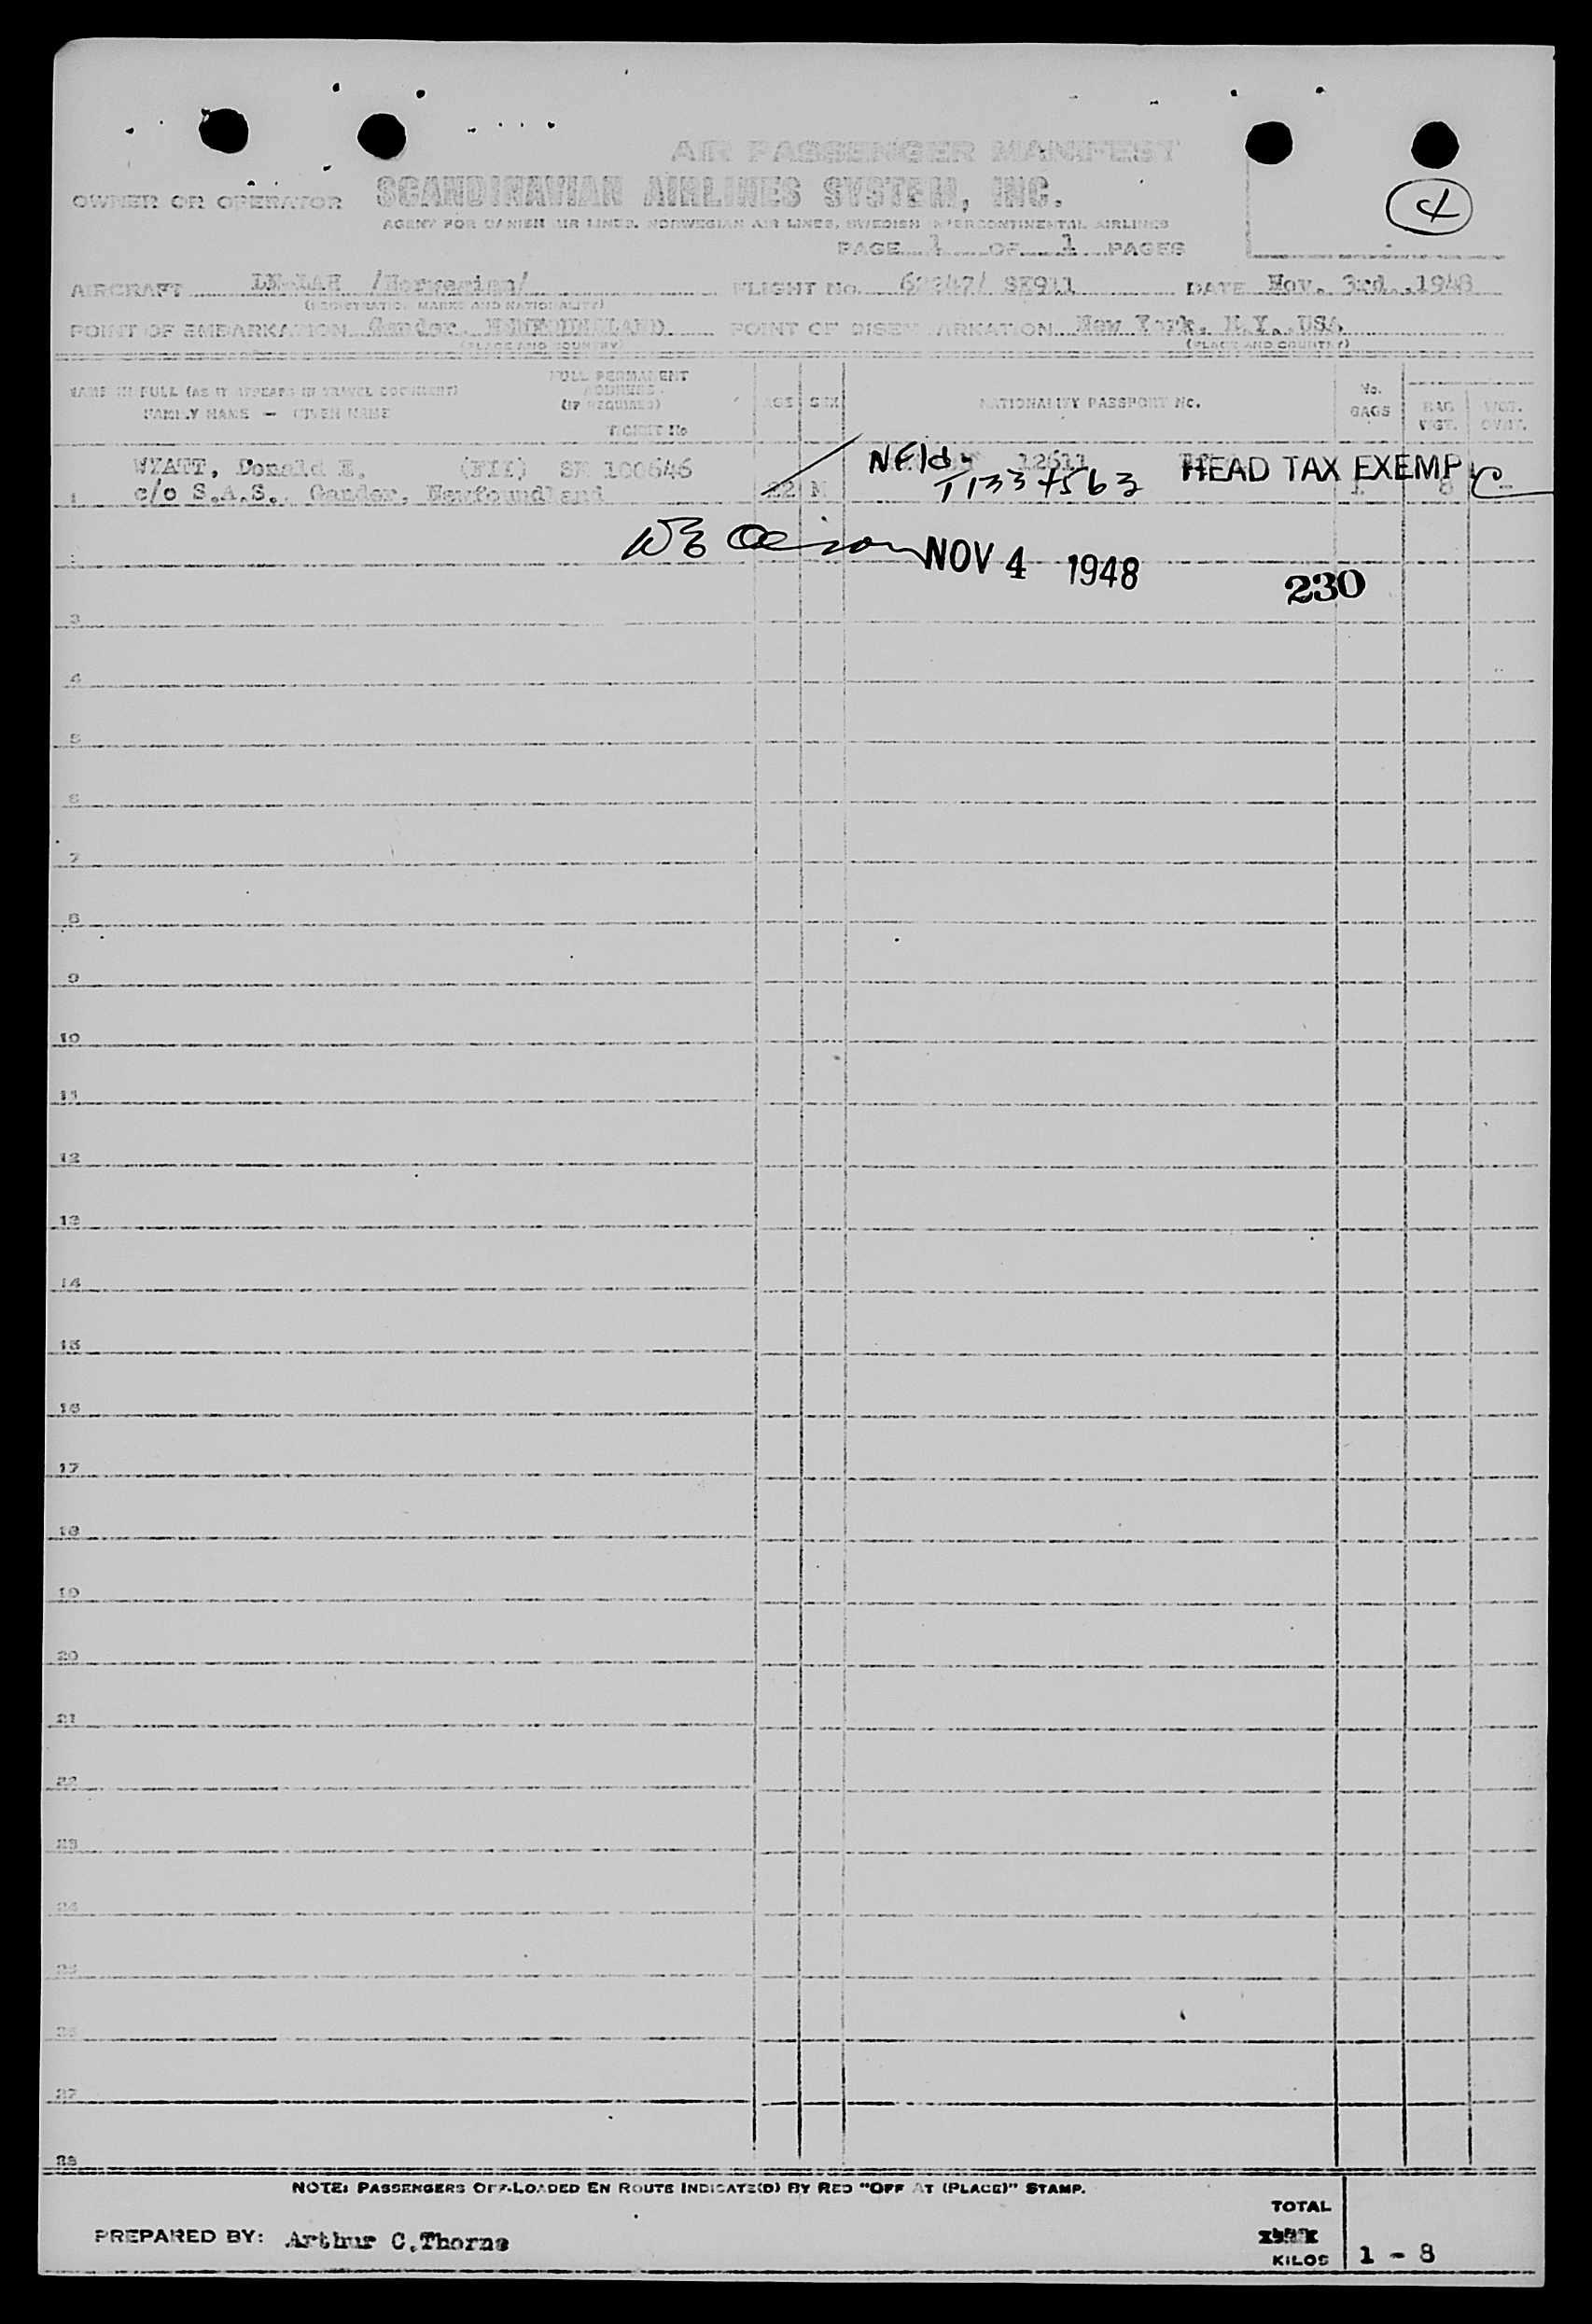 AIR PASSENGER MANIFEST
OWNER OR OPERATOR SCANDINAVIAN AIRLINES SYSTEM, INC.
AGENT FOR DANISH AIR LINES, NORWEGIAN AIR LINES, SWEDISH INTERCONTINENTAL AIRLINES
PAGE 1 OF 1 PAGES
AIRCRAFT /Norwegian/ FLIGHT No. DATE Nov. 3rd.,1948
(REGISTRATION MARKS AND NATIONALITY)
POINT OF EMBARKATION Gander, NEWFOUNDLAND POINT OF DISEMBARKATION New York, N.Y., USA
(PLACE AND COUNTRY) (PLACE AND COUNTRY)
NAME IN FULL (AS IT APPEARS IN TRAVEL DOCUMENT)
FAMILY NAME — GIVEN NAME
FULL PERMANENT
ADDRESS
(IF REQUIRED)
TICKET No
AGE SEX NATIONALITY PASSPORT No. No. BAGS BAG WGT. WGT. OVWT.
WYATT, Donald E. SK 100646 NFld. 12611 HEAD TAX EXEMP
1 c/o S.A.S., Gander, Newfoundland 22 M 1 8 -
NOV 4 1948
230
3
4
5
6
7
8
9
10
11
12
13
14
15
16
17
18
19
20
21
22
23
24
25
26
27
28
NOTE: PASSENGERS OFF-LOADED EN ROUTE INDICATE(D) BY RED "OFF AT (PLACE)" STAMP.
PREPARED BY: Arthur C.Thorne
TOTAL
KILOS 1 - 8